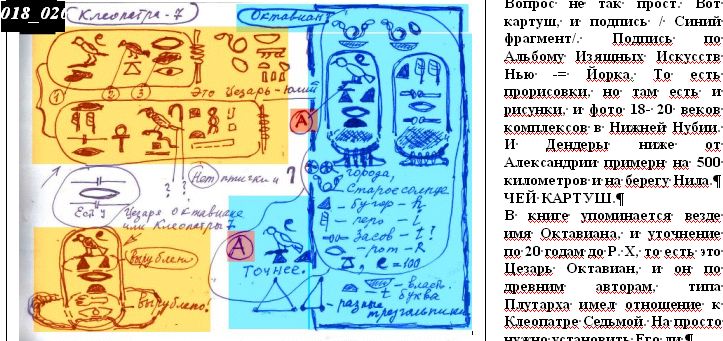 018_02
Клеопатра-7
Октавиан?
1 2 3
Это Цезарь-Юлий
А
Нет птички и ?
? ?
Есть у Цезаря Октавиана
или Клеопатры 7
города,
Старосолнце
- бугор - h
- перо - i
- Засов - t?
- рот - R
, е=100
А
Точнее.
- власт.
t буква
- разные
треугольники
Вырублено
- вырублено.
Вопрос не так прост. Вот
картуш, и подпись / Синий
фрагмент/. Подпись по
Альбому Изящных Искусств
Нью -= Йорка. То есть
прорисовки, но там есть и
рисунки, и фото 18- 20 веков
комплексов в Нижней Нубии.
И Дендеры ниже от
Александрии примерн на 500
километров и на берегу Нила.¶
ЧЕЙ КАРТУШ.¶
В книге упоминается везде
имя Октавиана, и уточнение
по 20 годам до Р. Х, то есть это
Цезарь Октавиан, и он по
древним авторам, типа
Плутарха имел отношение к
Клеопатре Седьмой. На просто
нужно установить Его ли ¶